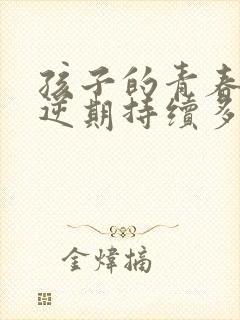 孩子的青春
逆期持续多
金炜摘